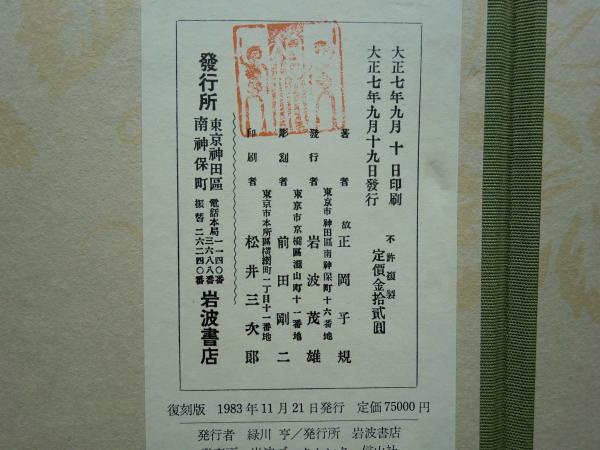 大正七年九月十日印刷
大正七年九月十九日發行
不許複製
定價金拾貳圓
著者 故 正岡子規
東京市神田區南神保町十六番地
發行者 岩波茂雄
東京市京橋區瀧山町十一番地
彫刻者 前田剛二
東京市本所區横網町二丁目十一番地
印刷者 松井三次郎
發行所 東京神田區南神保町 電話本局 一一四〇番 三六八八番 振替 二六二四〇番 岩波書店
復刻版 1983年11月21日発行 定価75000円
発行者 緑川 亨／発行所 岩波書店